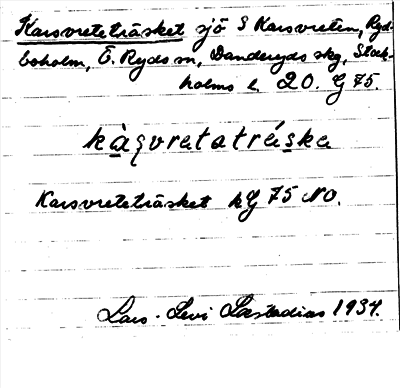 Karsvreteträsket sjö S Karsvreten, Ryd-
boholm, Ö. Ryds sn, Danderyds skg, Stock-
holms l. 20. G 75.
kàşvretatrέska
Karsvreteträsket hG 75 NO.
Lars-Levi Læstadius 1934.